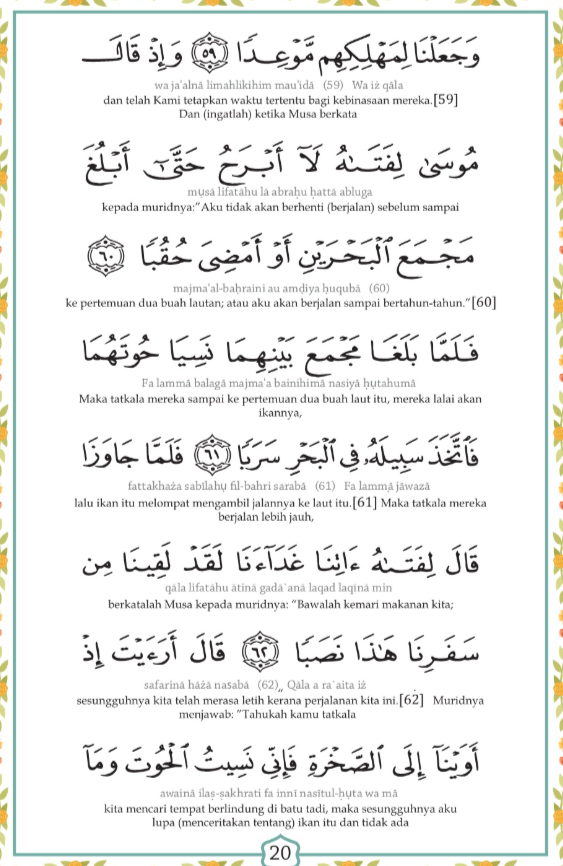 وَجَعَلْنَا لِمَهْلِكِهِم مَّوْعِدًا ﴿٥٩﴾ وَإِذْ قَالَ
wa ja'alnā limahlikihim mau'idā (59) Wa iż qāla
dan telah Kami tetapkan waktu tertentu bagi kebinasaan mereka.[59]
Dan (ingatlah) ketika Musa berkata
مُوسَىٰ لِفَتَىٰهُ لَآ أَبْرَحُ حَتَّىٰٓ أَبْلُغَ
mụsā lifatāhu lā abraḥu ḥattā abluga
kepada muridnya:"Aku tidak akan berhenti (berjalan) sebelum sampai
مَجْمَعَ ٱلْبَحْرَيْنِ أَوْ أَمْضِىَ حُقُبًا ﴿٦٠﴾
majma'al-baḥraini au amḍiya ḥuqubā (60)
ke pertemuan dua buah lautan; atau aku akan berjalan sampai bertahun-tahun."[60]
فَلَمَّا بَلَغَا مَجْمَعَ بَيْنِهِمَا نَسِيَا حُوتَهُمَا
Fa lammā balagā majma'a bainihimā nasiyā ḥụtahumā
Maka tatkala mereka sampai ke pertemuan dua buah laut itu, mereka lalai akan
ikannya,
فَٱتَّخَذَ سَبِيلَهُۥ فِى ٱلْبَحْرِ سَرَبًا ﴿٦١﴾ فَلَمَّا جَاوَزَا
fattakhaża sabīlahụ fil-bahri sarabā (61) Fa lammā jāwazā
lalu ikan itu melompat mengambil jalannya ke laut itu.[61] Maka tatkala mereka
berjalan lebih jauh,
قَالَ لِفَتَىٰهُ ءَاتِنَا غَدَآءَنَا لَقَدْ لَقِينَا مِن
qāla lifatāhu ātinā gadā`anā laqad laqīnā min
berkatalah Musa kepada muridnya: "Bawalah kemari makanan kita;
سَفَرِنَا هَٰذَا نَصَبًا ﴿٦٢﴾ قَالَ أَرَءَيْتَ إِذْ
safarinā hāżā naṣabā (62)„ Qāla a ra`aita iż
sesungguhnya kita telah merasa letih kerana perjalanan kita ini.[62] Muridnya
menjawab: "Tahukah kamu tatkala
أَوَيْنَآ إِلَى ٱلصَّخْرَةِ فَإِنِّى نَسِيتُ ٱلْحُوتَ وَمَآ
awainā ilaṣ-ṣakhrati fa innī nasītul-ḥụta wa mā
kita mencari tempat berlindung di batu tadi, maka sesungguhnya aku
lupa (menceritakan tentang) ikan itu dan tidak ada
20